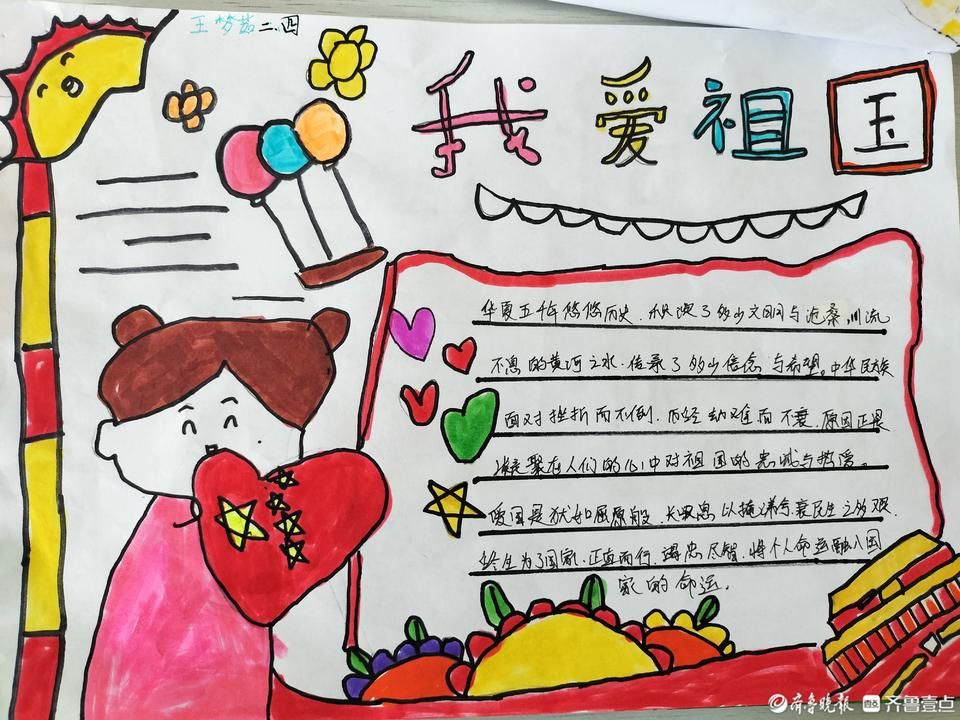 王梦茹二.四
我爱祖国
华夏五千年悠悠历史.承溃了多少文明与沧桑.川流
不息的黄河之水.传承了多少信念与希望。中华民族
面对挫折而不倒.历经劫难而不衰.原因正是
凝聚在人们的心中对祖国的忠诚与热爱。
爱国是犹如屈原般.长叹息以掩涕兮哀民生之多艰.
终生为了国家.正直而行.竭忠尽智.将个人命运融入国
家的命运。
齐鲁晚报 齐鲁壹点